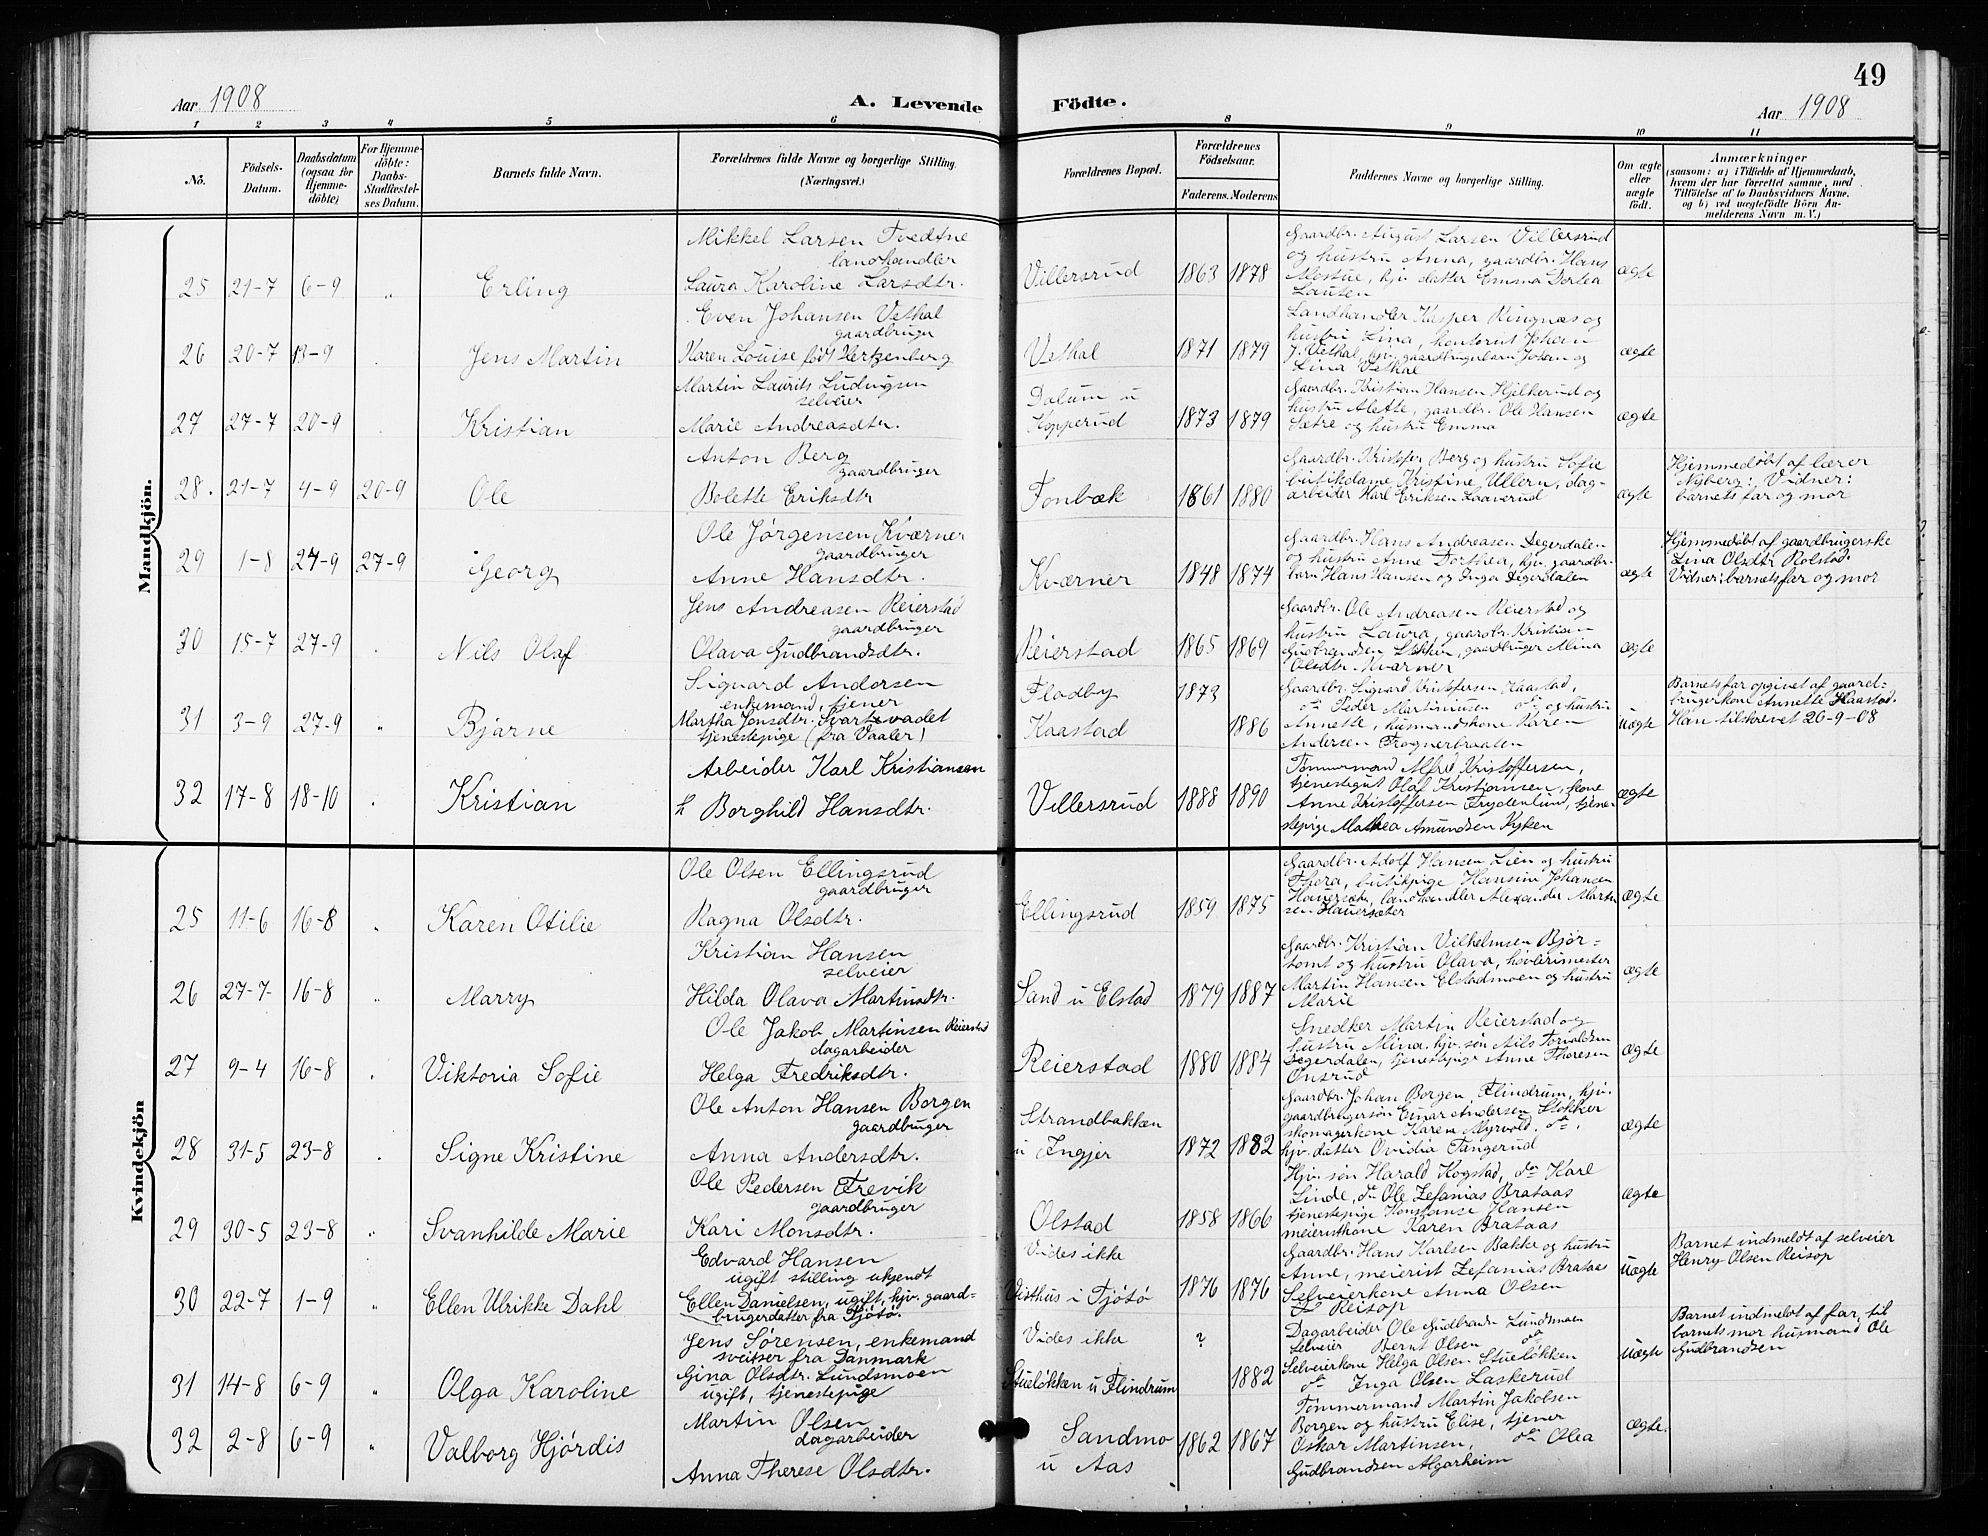 49
Aar 1908
A. Levende
Födte.
Aar 1908
1 2 3 4 5 6 8 9 10 11
No.
Födsels-Datum.
Daabsdatum (ogsaa for Hjemmedöbte)
For Hjemmedöbte: Daabs-Stadfæstelses Datum.
Barnets fulde Navn.
Forældrenes fulde Navne og borgerlige Stilling. (Næringsvei.)
Forældrenes Bopæl.
Forældrenes Födselsaar.
Faderens. Moderens
Faddernes Navne og borgerlige Stilling.
Om ægte eller uægte födt.
Anmærkninger
(saasom: a) i Tilfælde af Hjemmedaab,
hvem der har forrettet samme, med
Tilföielse af to Daabsvidners Navne.
og b) ved uægtefödte Börn An-
melderens Navn m. V.)
Mandkjön.
Mikkel Larsen Tvedtne
landhandler
25 21-7 6-9 „ Erling Laura Karoline Larsdtr. Villersrud 1863 1878
Gaardbr. August Larsen Villersrud
og hustru Anna, gaardbr. Hans
Mostue, hjv. datter Emma Dortea
Lausen
ægte
Even Johansen Vethal
gaardbruger
26 20-7 13-9 Jens Martin Karen Louise født Hertzenberg Vethal 1871 1879
Landhandler Kasper Ringnæs og
hustru Lina, kontorist Johan
J. Vethal, hjv. gaardbrugerbarn Johan og
Lina Vethal
ægte
Martin Laurits Ludvigsen
selveier
27 27-7 20-9 Kristian Marie Andreasdtr. Dalum u Kopperud 1873 1879
Gaardbr. Kristian Hansen Hjelkerud og
hustru Alette, gaardbr. Ole Hansen
Sætre og hustru Emma
ægte
Anton Berg
gaardbruger
28. 21-7 4-9 20-9 Ole Bolette Eriksdtr Fonbæk 1861 1880
Gaardbr. Kristofer Berg og hustru Sofie
butikdame Kristine Ullern, dag-
arbeider Karl Eriksen Laaverud
ægte
Hjemmedøbt af lærer
Nyberg: Vidner:
barnets far og mor
Ole Jørgensen Kværner
gaardbruger
29 1-8 27-9 27-9 Georg Anne Hansdtr. Kværner 1848 1874
Gaardbr. Hans Andreasen Degerdalen
og hustru Anne Dorthea, hjv. gaardbr-
barn Hans Hansen og Inga Degerdalen
ægte
Hjemmedøbt af gaardbrugerske
Lina Olsdtr Rolstad.
Vidner: barnets far og mor
Jens Andreasen Reierstad
gaardbruger
30 15-7 27-9 Nils Olaf Olava Gudbrandsdtr. Reierstad 1865 1869
Gaardbr. Ole Andreasen Reierstad og
hustru Laura, gaardbr. Kristian
Gudbrandsen, gaardbruger Mina
Olsdtr. Kværner
ægte
Sigvard Andersen
enkemand, tjener
31 3-9 27-9 „ Bjarne Martha Jensdtr. Svartevadet
tjenestepige (fra Vaaler)
Flodby Kaastad 1873 1886
Gaardbr. Sigvard Kristofersen Kaastad,
do Peder Martiniusen do og hustru
Annette, husmandskone Karen
Andersen Trognerbraaten
uægte
Barnets far opgivet af gaard-
brugerkone Annette Kaastad.
Han tilskrevet 26-9-08
Arbeider Karl Kristiansen
32 17-8 18-10 Kristian h Borghild Hansdtr. Villersrud 1888 1890
Tømmermand Alfred Kristoffersen,
tjenestegut Olaf Kristiansen, kone
Anne Kristoffersen Frydenlund, tjene-
stepige Mathea Amundsen Kyken
ægte
Kvindekjön
Ole Olsen Ellingsrud
gaardbruger
25 11-6 16-8 „ Karen Otilie Ragna Olsdtr. Ellingsrud 1859 1875
Gaardbr. Adolf Hansen Lien og hustru
Thora, butikpige Hansine Johansen
Hauersæter, landhandler Alexander Martin
sen Hauersæter
ægte
Kristian Hansen
selveier
26 27-7 16-8 „ Marry Hilda Olava Martinsdtr. Sand u Elstad 1879 1887
Gaardbr. Kristian Vilhelmsen Bjør-
tomt og hustru Olava, høvlerimester
Martin Hansen Elstadmoen og hustru
Marie
ægte
Ole Jakob Martinsen Reierstad
dagarbeider
27 9-4 16-8 Viktoria Sofie Helga Fredriksdtr. Reierstad 1880 1884
Snedker Martin Reierstad og
hustru Mina, hjv. søn Nils
Degerdalen, tjenestepige Anne Thoresen
Onsrud
ægte
Ole Anton Hansen Borgen
gaardbruger
28 31-5 23-8 Signe Kristine Anna Andersdtr. Strandbakken u Ingjer 1872 1882
Gaardbr. Johan Borgen, Flindrum, hjv.
gaardbrugersøn Einar Andersen Stokker
skomagerkone Karen Myrvold, do,
hjv. datter Ovidia Tangerud
ægte
Ole Pedersen Trevik
gaardbruger
29 30-5 23-8 „ Svanhilde Marie Kari Monsdtr. Olstad 1858 1866
Hjv. søn Harald Kogstad, do Karl
Linde, do Ole Zefanias Brataas
tjenestepige Konstanse Hansen
meierskone Karen Brataas
ægte
Edvard Hansen
ugift stilling ukjendt
30 22-7 1-9 „ Ellen Ulrikke Dahl Ellen Danielsen, ugift, hjv. gaard-
brugerdatter fra Tjøtø.
Vides ikke
Visthus i Tjøtø 1876 1876
Gaardbr. Hans Karlsen Bakke og hustru
Anne, meierist Zefanias Brataas
Selveierkone Anna Olsen
Reisop
uægte
Barnet indmeldt af selveier
Henry Olsen Reisop
Jens Sørensen, enkemand
sveitser fra Danmark
31 14-8 6-9 „ Olga Karoline Gina Olsdtr. Lundsmoen
ugift, tjenestepige
Vides ikke ?
Stueløkken u Flindrum 1882
Dagarbeider Ole Gudbrands. Lundsmoen
Selveier Bernt Olsen do
Selveierkone Helga Olsen Stueløkken
do Inga Olsen Laskerud
uægte
Barnet indmeldt af far, til
barnets mor husmand Ole
Gudbrandsen
Martin Olsen
dagarbeider
32 2-8 6-9 „ Valborg Hjørdis Anna Therese Olsdtr. Sandmo u Aas 1862 1867
Tømmermand Martin Jakobsen
Borgen og hustru Elise, tjener
Oskar Martinsen, do Olea
Gudbrandsen Algarheim
ægte.